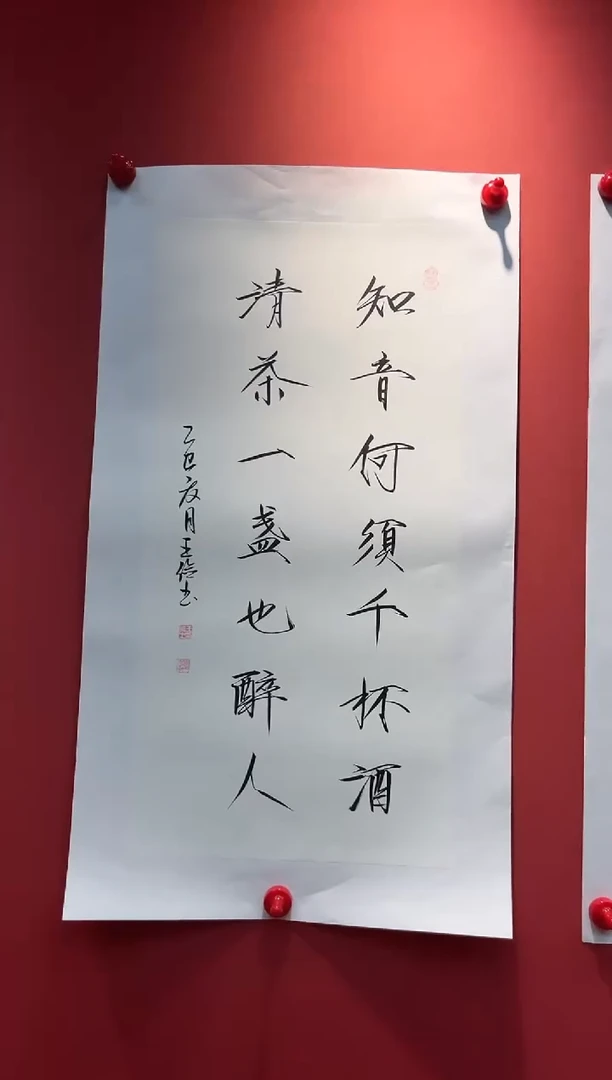 知音何須千杯酒
清茶一盞也醉人
乙巳夜月王俗书